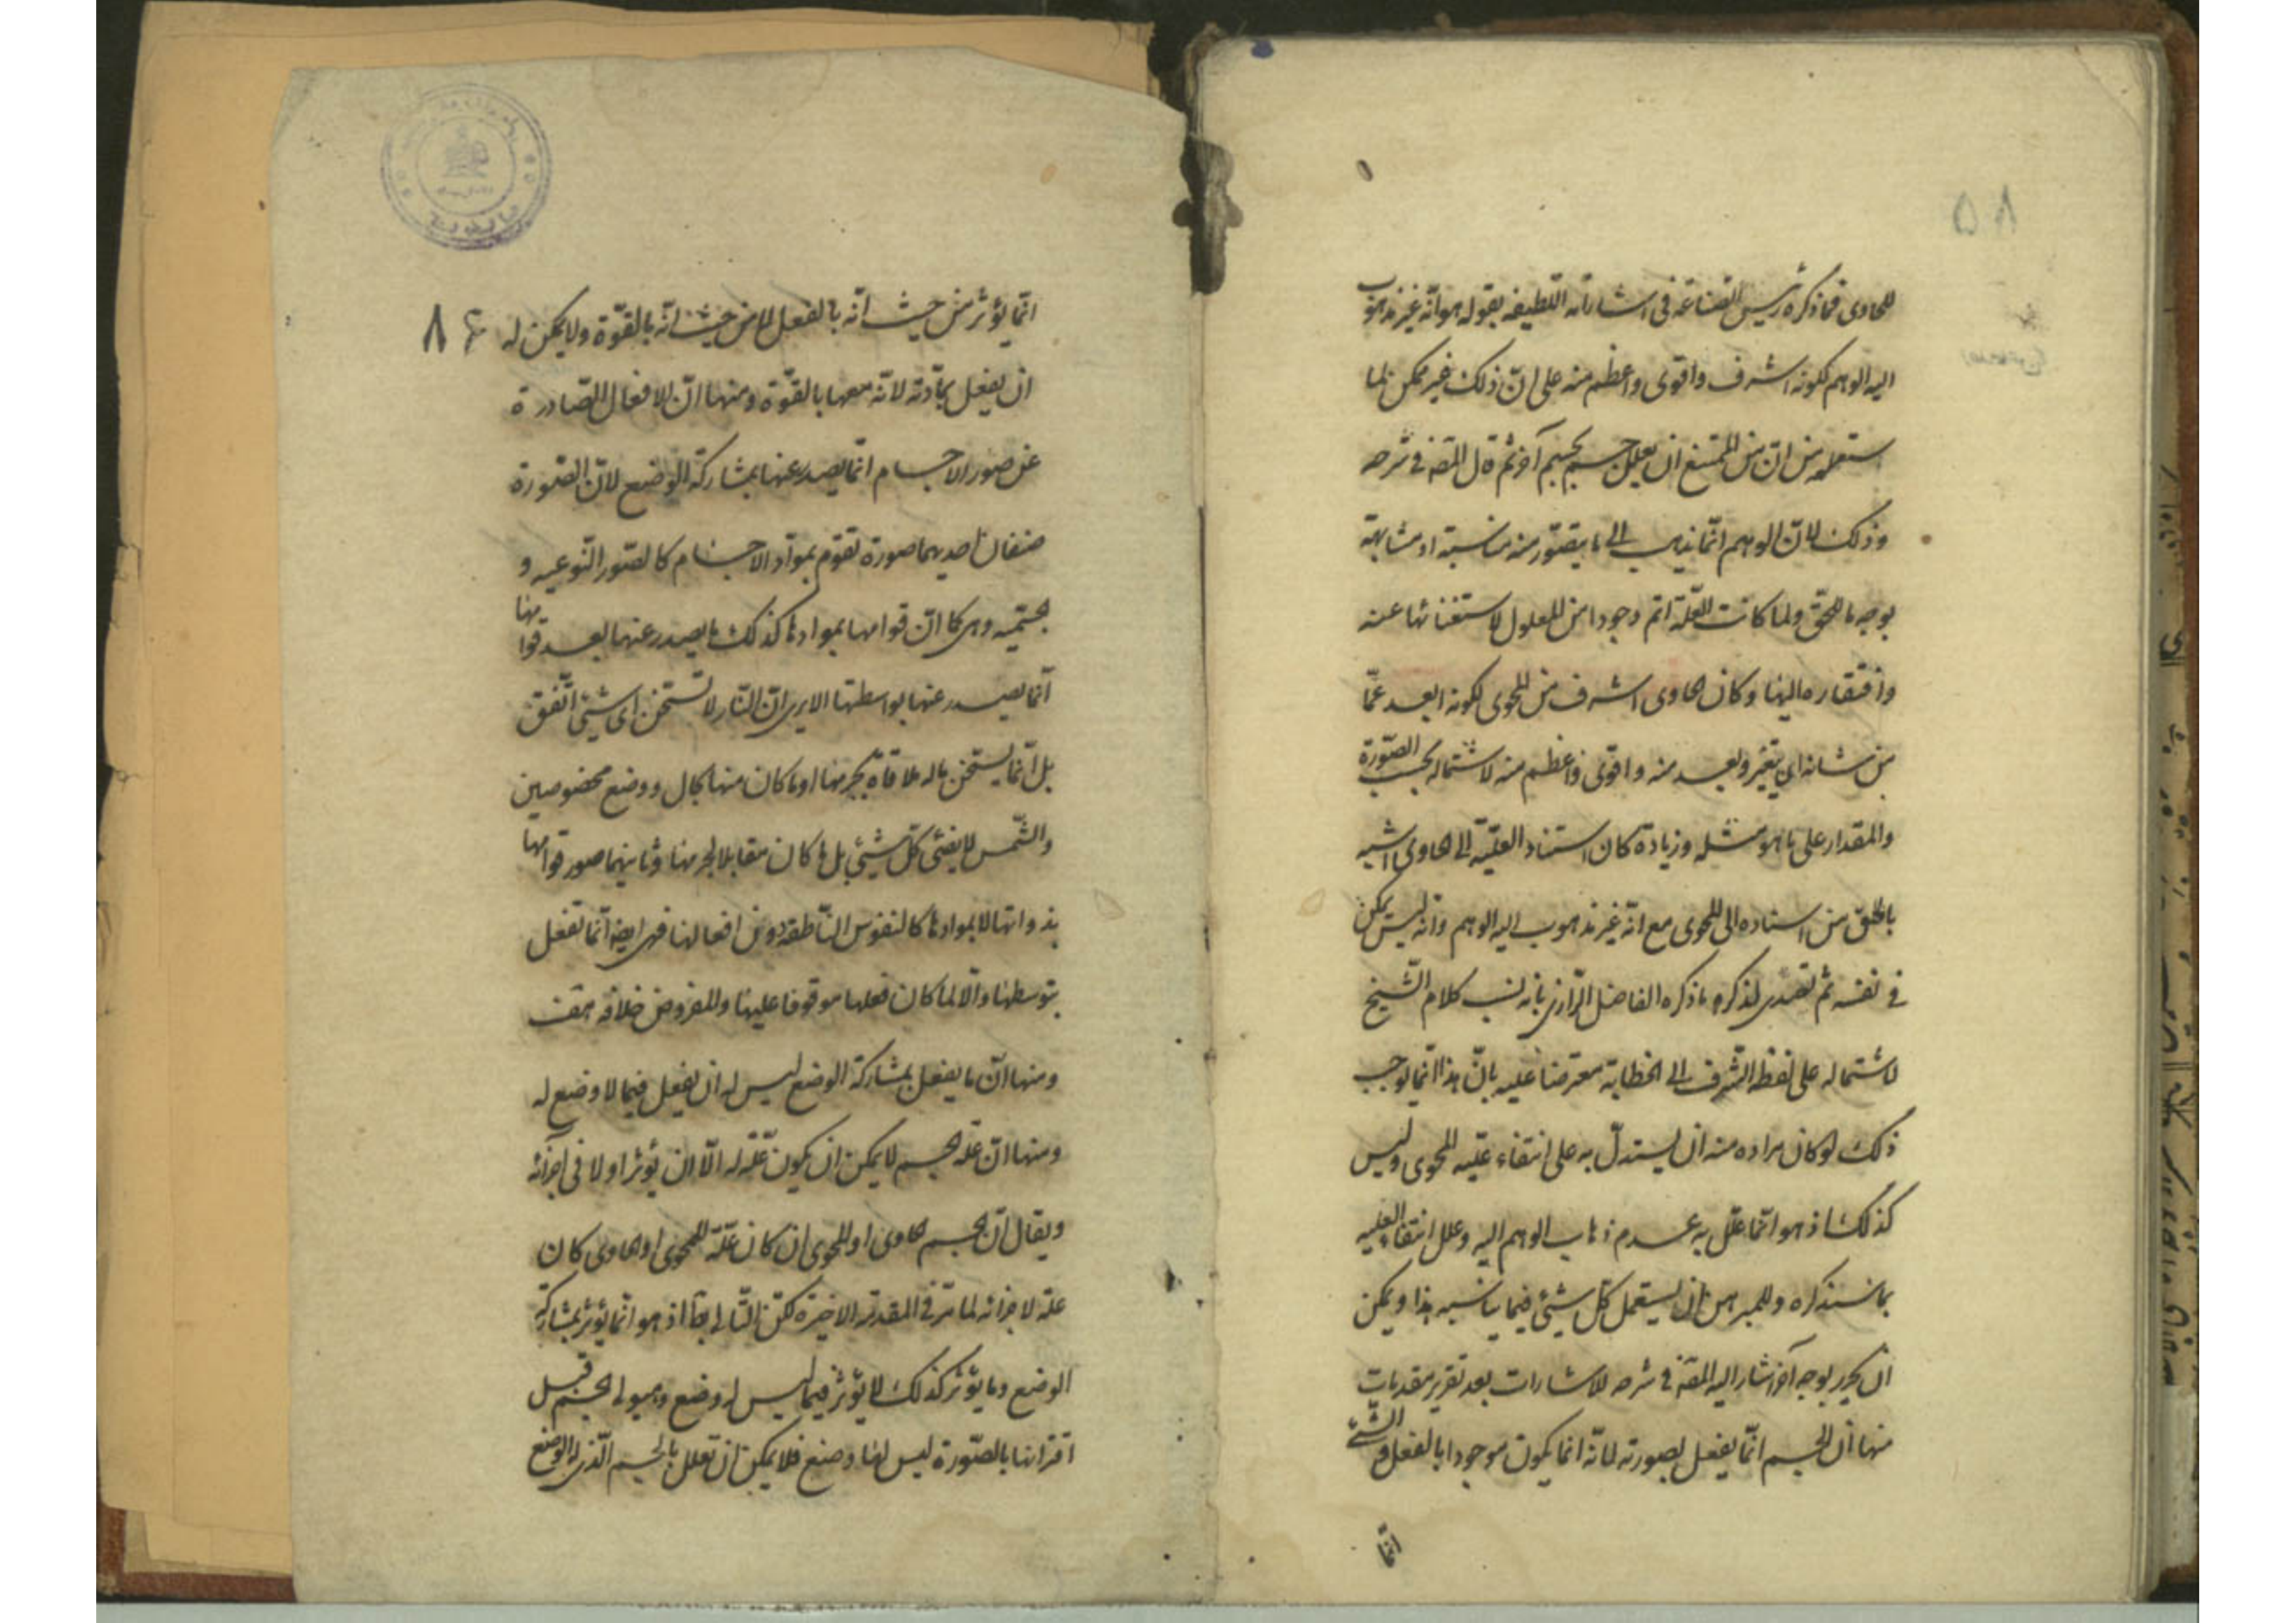 ٨٥
للحاوى فما ذكره رئيس الصناعة فى اشاراته اللطيفه بقوله هو انّه غير مذهوب
اليه الوهم لكونه اشرف واقوى واعظم منه على انّ ذلك غير ممكن لما
ستعلمه من انّ من الممتنع ان يعلل جسم بجسم آخر ثم قال المصـ فى شرحه
وذلك لانّ الوهم انّما يذهب الى ما يتصوّر منه مناسبة او مشابهة
بوجه ما للحق ولما كانت العلّة اتم وجودا من المعلول لاستغنائها عنه
وافتقاره اليها وكان الحاوى اشرف من المحوى لكونه ابعد عمّا
من شانه ان يتغير ويفسد منه واقوى واعظم منه لاشتماله بحسب الصّورة
والمقدار على ما هو مثله وزيادة كان استناد العليّة الى الحاوى اشبه
بالحق من اسناده الى المحوى مع انّه غير مذهوب اليه الوهم وانّه ليس يمكن
فى نفسه ثم تصدى لذكر ما ذكره الفاضل الرازى بانه نسب كلام الشّيخ
لاشتماله على لفظ الشّرف الى الخطابة معترضا عليه بانّ هذا انّما يوجب
ذلك لو كان مراده منه ان يستدلّ به على انتفاء عليّه المحوى وليس
كذلك اذ هو انّما علّل به عدم ذهاب الوهم اليه وعلل انتفاء العليه
بما سنذكره وللمبرهن ان يستعمل كل شيئ فيما يناسبه هذا ويمكن
ان يحرر بوجه آخر اشار اليه المصـ فى شرحه للاشارات بعد تقرير مقدمات
منها ان الجسم انّما يفعل بصورته لانّه انما يكون موجودا بالفعل و الشّئ
انّما
٨٦
انّما يؤثر من حيث انّه بالفعل لا من حيث انّه بالقوّة ولا يمكن له
ان يفعل بمادّته لانّه معها بالقوّة ومنها انّ الافعال الصّادرة
عن صور الاجسام انّما يصدر عنها بمشاركة الوضع لانّ الصّورة
صنفان احديهما صورة تقوم بموادّ الاجسام كالصّور النّوعيه و
الجسّميه وهى كما انّ قوامها بموادها كذلك ما يصدر عنها بعد قوامها
انّما يصدر عنها بواسطتها الا يرى انّ النّار لا تستخن اى شيئ اتّفق
بل انّما يستخن ماله ملاقاة بجرمها او ما كان منها بحال ووضع مخصوصين
والشّمس لا يضئ كلّ شيئ بل ما كان مقابلا لجرمها وثانيهما صور قوامها
بذواتها لا بموادها كالنفوس النّاطقه دون افعالها فهى ايضا انّما تفعل
بتوسطها والّا لما كان فعلها موقوفا عليها والمفروض خلافه هف
ومنها انّ ما يفعل بمشاركة الوضع ليس له ان يفعل فيما لا وضع له
ومنها انّ علّة الجسم لا يمكن ان يكون علّة له الّا ان يؤثر اولا فى اجزائه
ويقال انّ الجسم الحاوى او المحوى ان كان علّة للمحوى او الحاوى كان
علة لاجزائه لما مرّ فى المقدمة الاخيرة لكنّ التّالى بط اذ هو انّما يؤثر بمشاركة
الوضع وما يؤثر كذلك لا يؤثر فيما ليس له وضع وهيولى الجسم قبل
اقترانها بالصّورة ليس لها وضع فلا يمكن ان تعلل بالجسم الّذى له الوضع